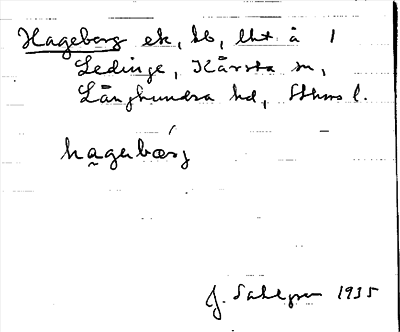 Hageberg ek, bb, lht å 1
Ledinge, Kårsta sn,
Långhundra hd, Sthms l.
hagebærj
J. Sahlgren 1935